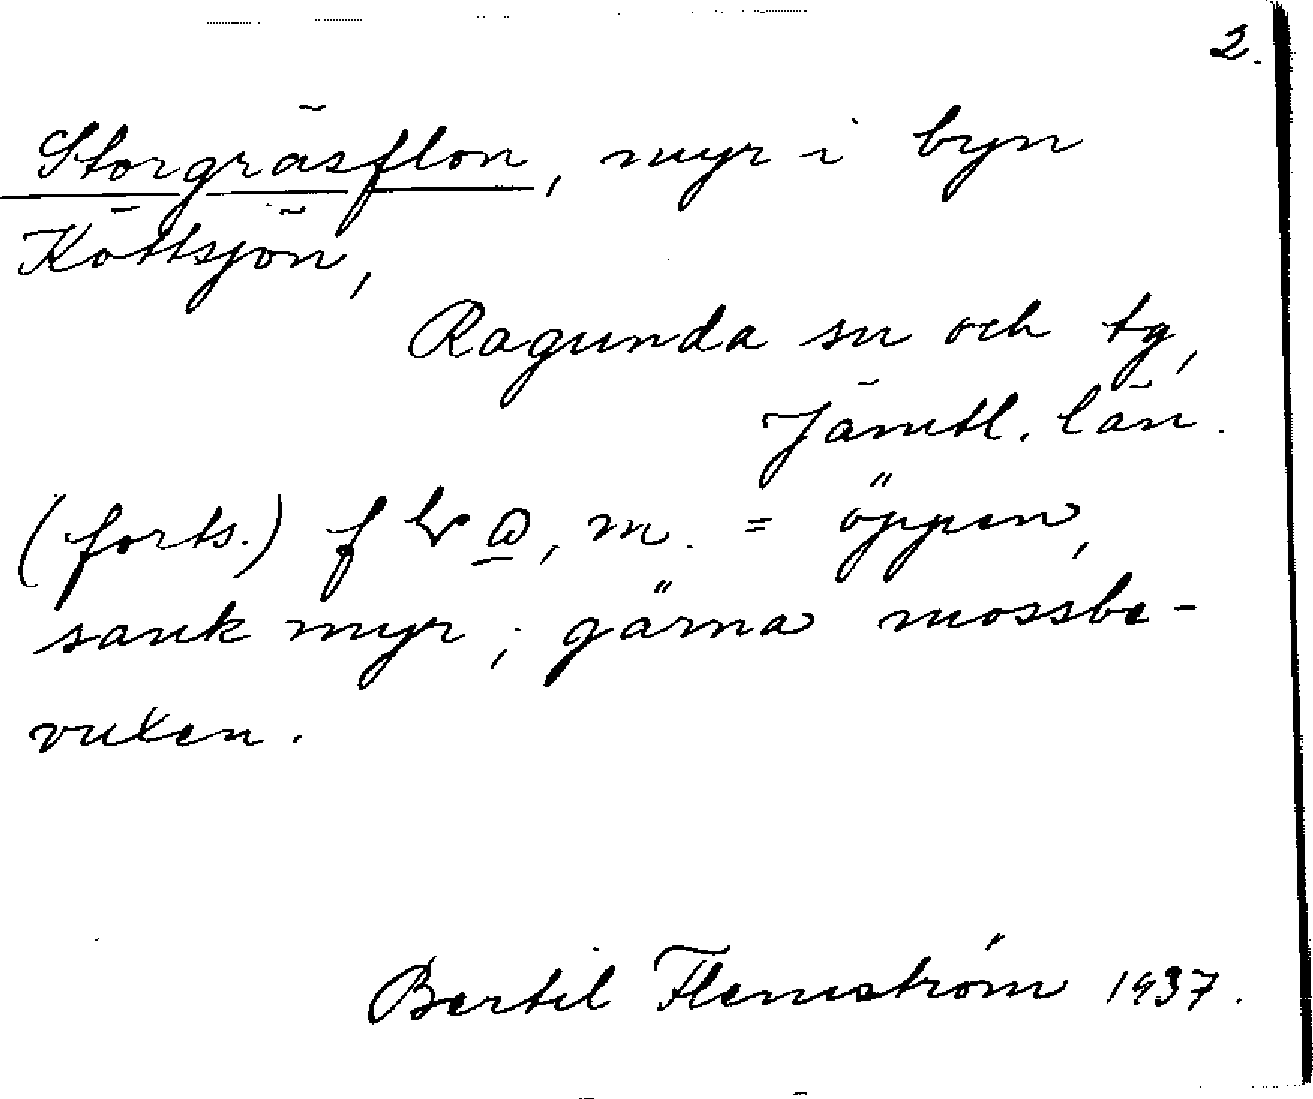 2.
Storgräsflon, myr i byn
Köttsjön,
Ragunda sn och tg,
Jämtl. län.
(forts.) m. = öppen,
sank myr; gärna mossbe-
vuxen.
Bertil Flemström 1937.